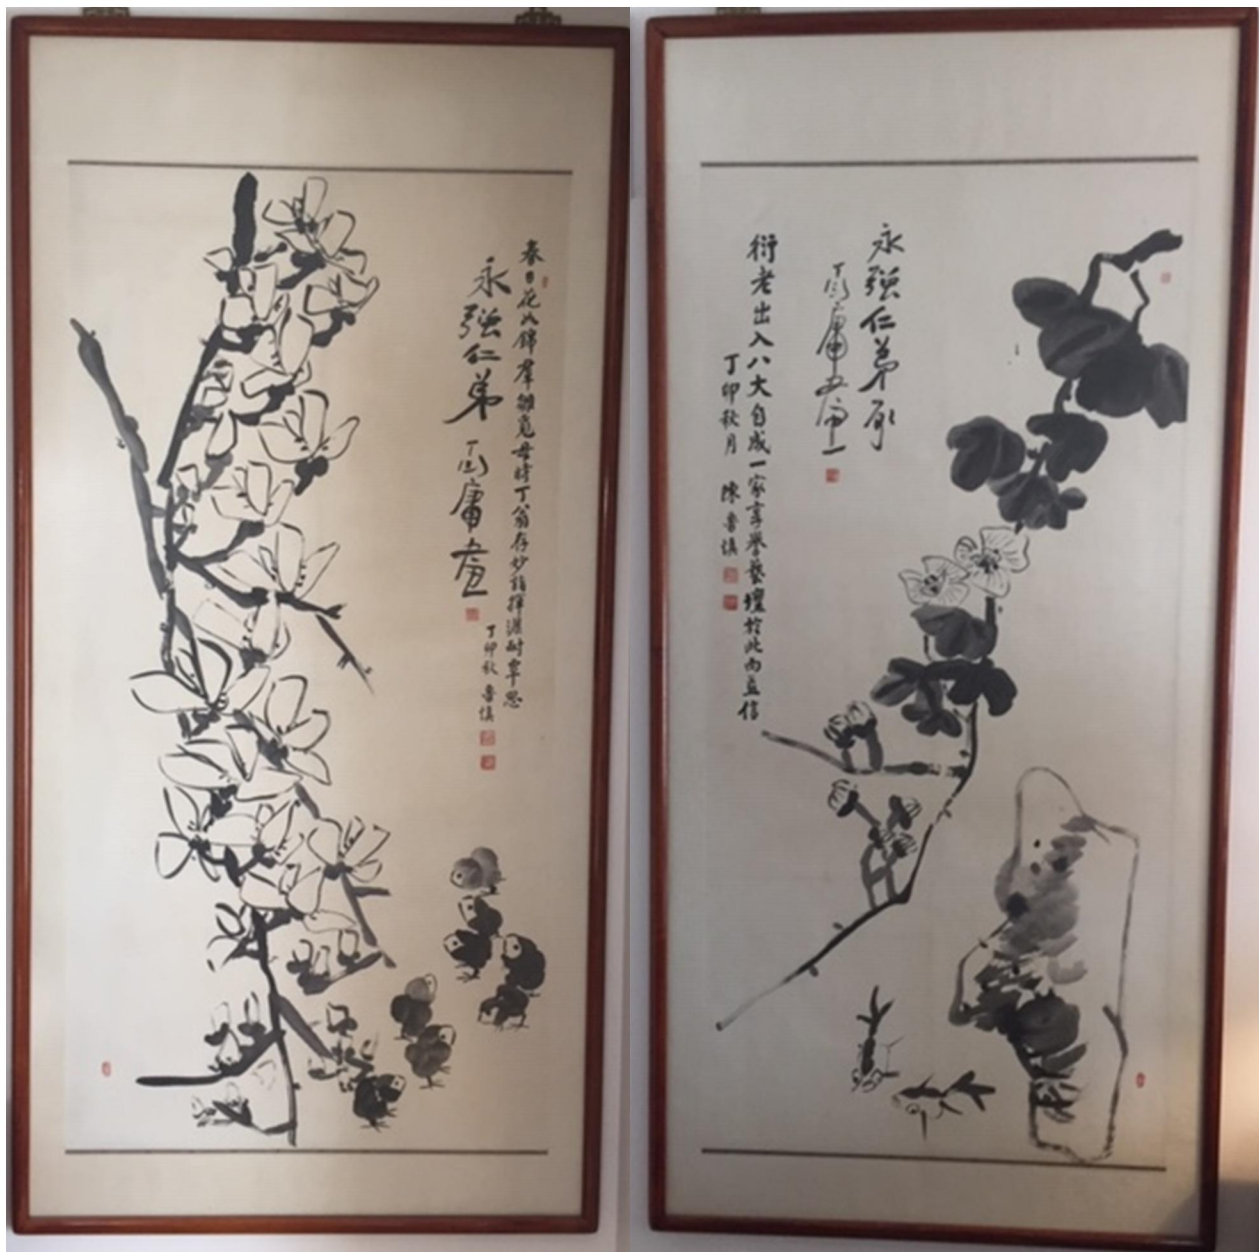 春日花以錦羣雛覓母時丁翁存妙詣揮灑耐覃思
永強仁弟
丁衍庸畫
丁卯秋魯慎
永強仁弟
丁衍庸
衍老出入八大自成一家享譽藝壇於此而益信
丁卯秋月 陳魯慎